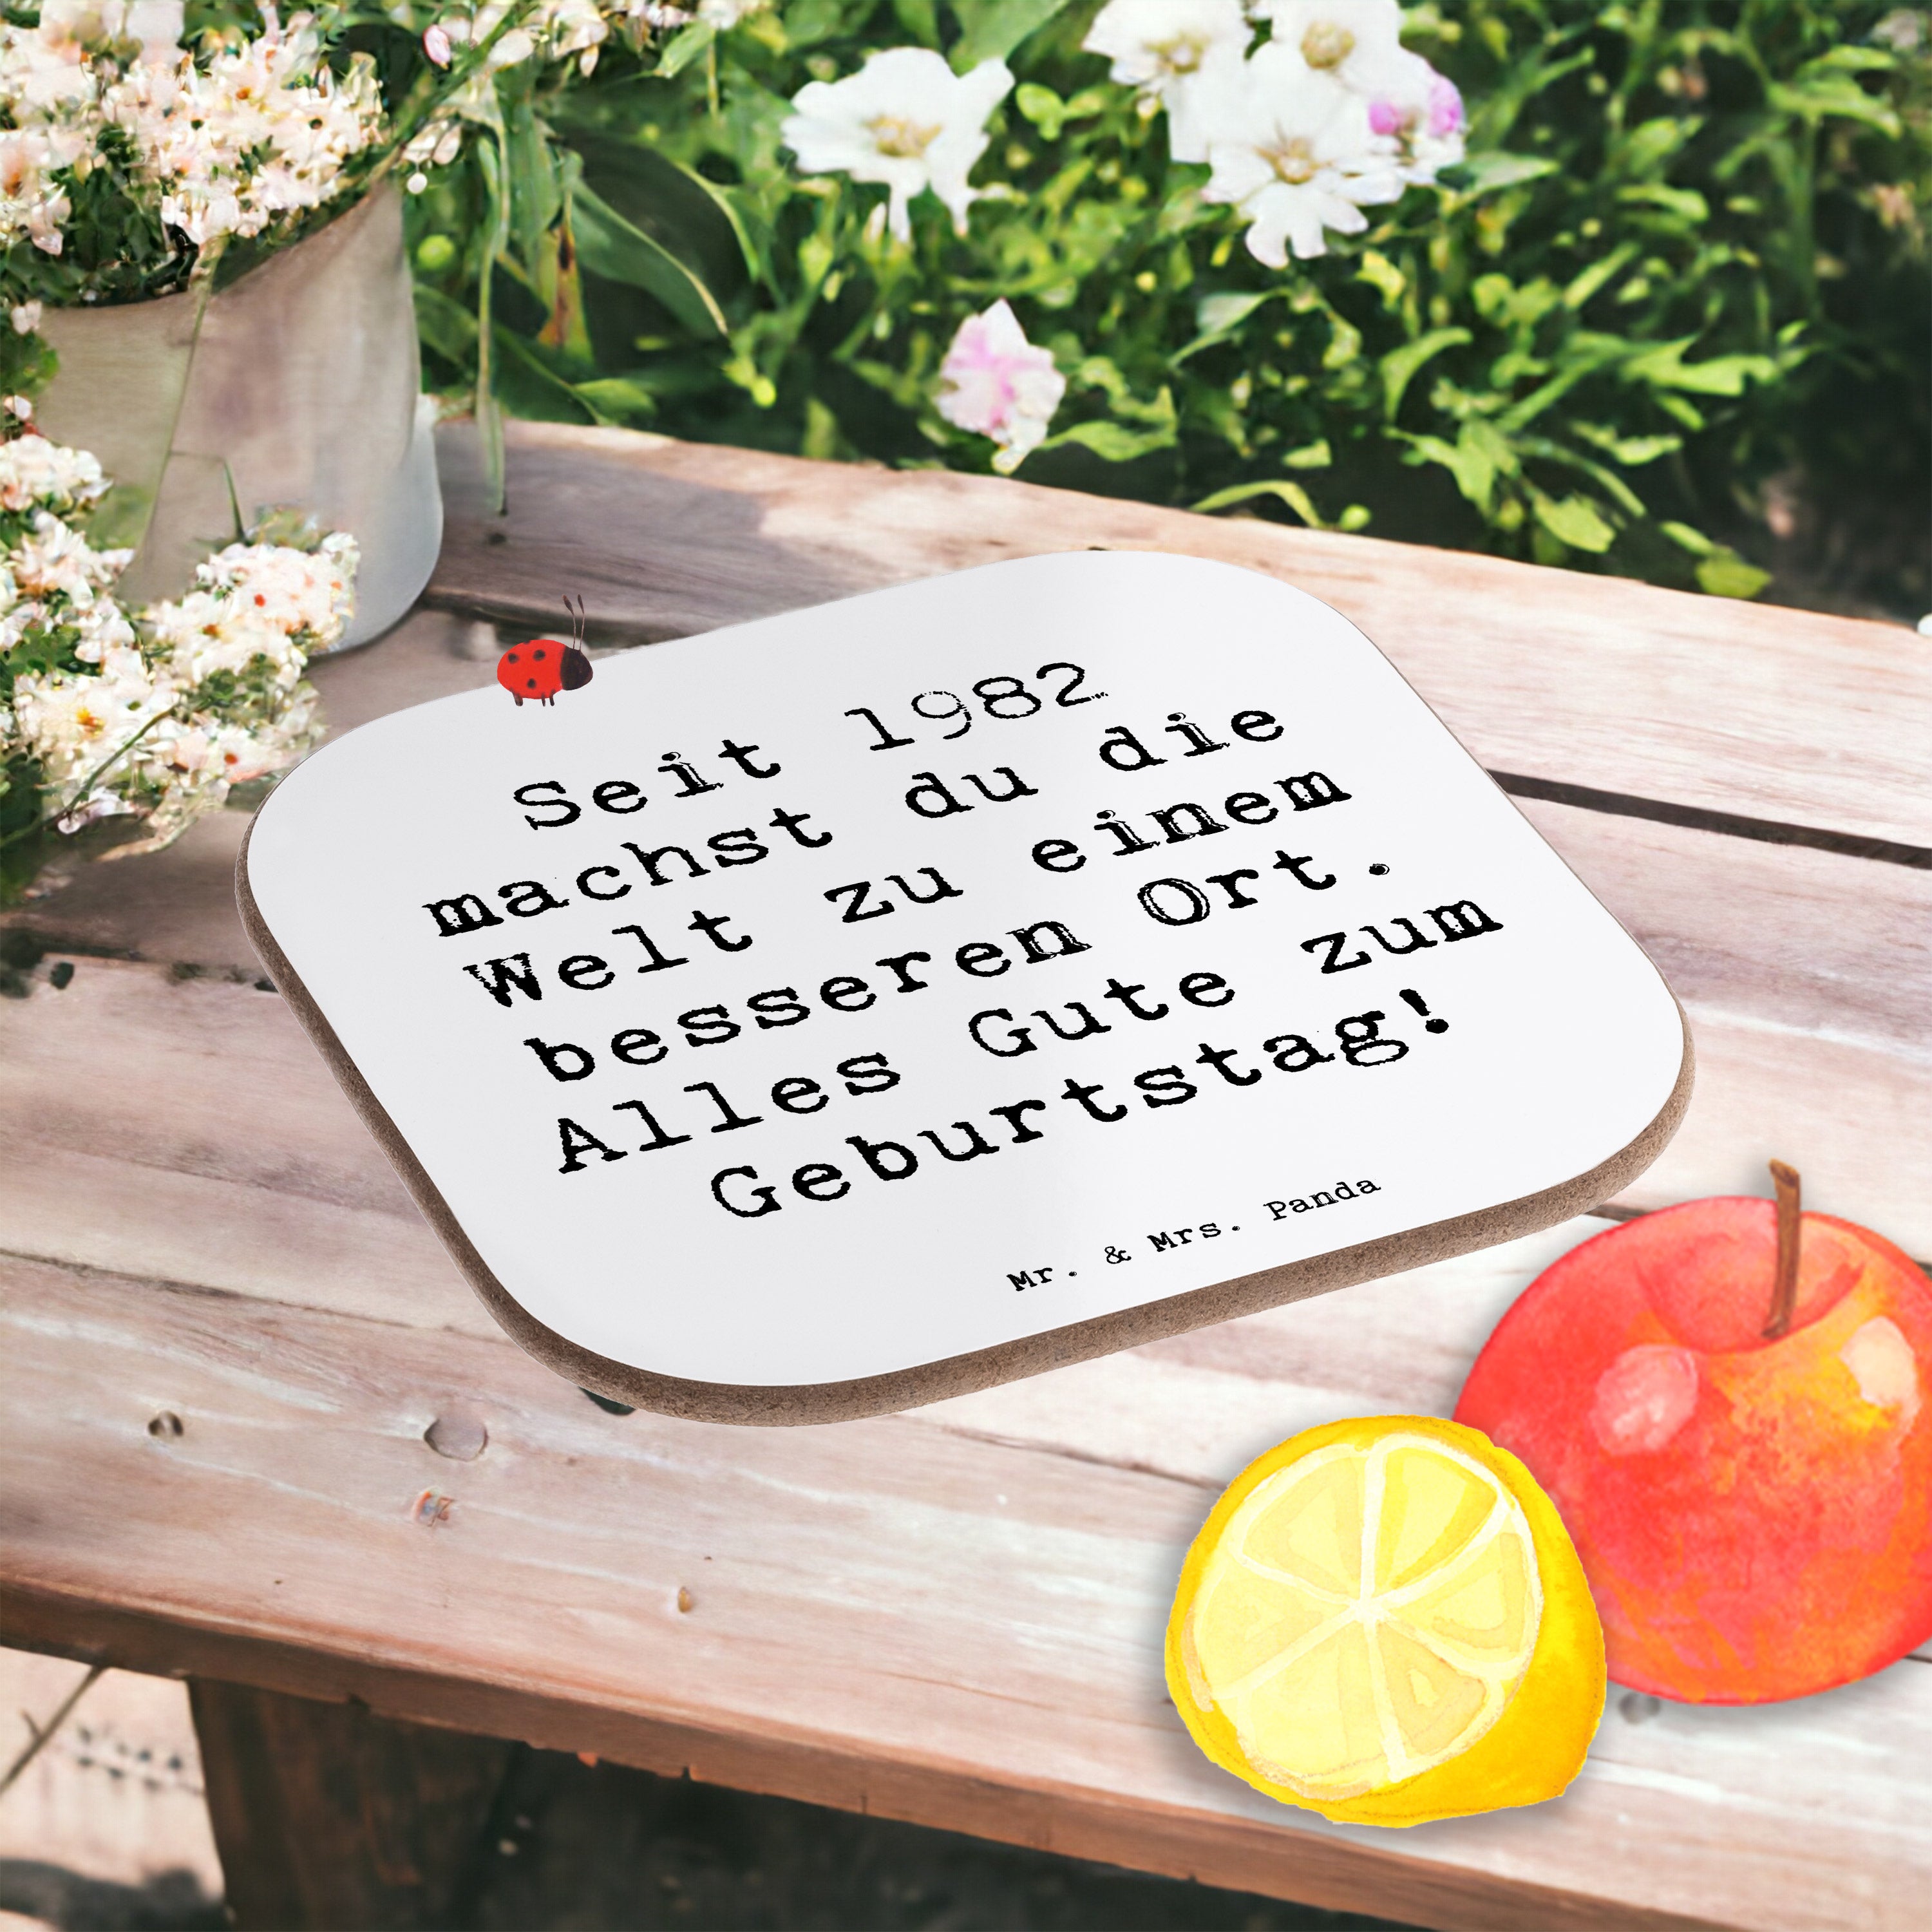 Seit 1982
machst du die
Welt zu einem
besseren Ort.
Alles Gute zum
Geburtstag!
Mr. & Mrs. Panda